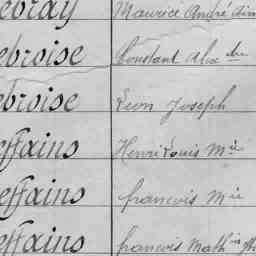 ebray Maurice André Aim
ebroise Constant Alex dre
ebroise Léon Joseph
effains Henri Louis M ie
effains francois M ie
effains francois Math in M